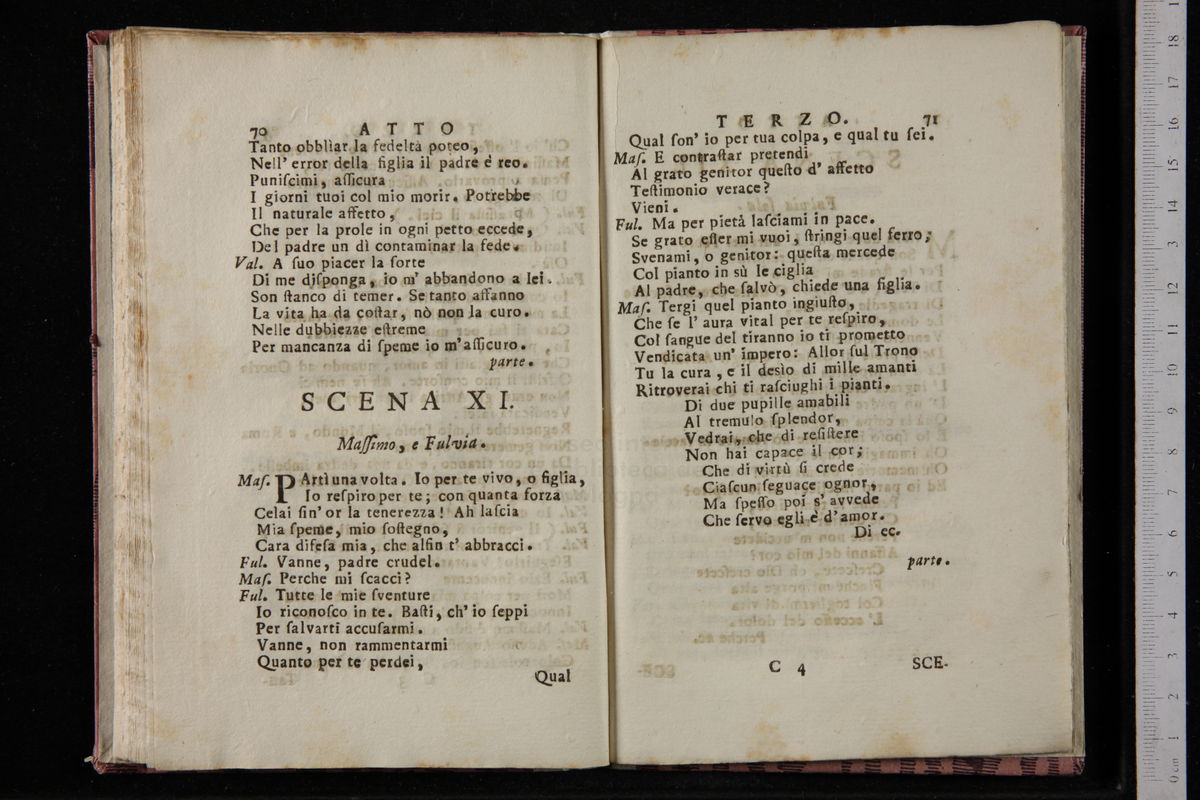 70 ATTO
Tanto obblìar la fedeltà poteo,
Nell' error della figlia il padre è reo.
Puniſcimi, aſſicura
I giorni tuoi col mio morir. Potrebbe
Il naturale affetto,
Che per la prole in ogni petto eccede,
Del padre un dì contaminar la fede.
Val. A ſuo piacer la ſorte
Di me diſponga, io m' abbandono a lei.
Son ſtanco di temer. Se tanto affanno
La vita ha da coſtar, nò non la curo.
Nelle dubbiezze eſtreme
Per mancanza di ſpeme io m'aſſicuro.
parte.
SCENA XI.
Maſſimo, e Fulvia.
Maſ. PArtì una volta. Io per te vivo, o figlia,
Io reſpiro per te; con quanta forza
Celai ſin' or la tenerezza! Ah laſcia
Mia ſpeme, mio ſoſtegno,
Cara difeſa mia, che alfin t' abbracci.
Ful. Vanne, padre crudel.
Maſ. Perche mi ſcacci?
Ful. Tutte le mie ſventure
Io riconoſco in te. Baſti, ch' io ſeppi
Per ſalvarti accuſarmi.
Vanne, non rammentarmi
Quanto per te perdei,
Qual
TERZO. 71
Qual ſon' io per tua colpa, e qual tu ſei.
Maſ. E contraſtar pretendi
Al grato genitor queſto d' affetto
Teſtimonio verace?
Vieni.
Ful. Ma per pietà laſciami in pace.
Se grato eſſer mi vuoi, ſtringi quel ferro;
Svenami, o genitor: queſta mercede
Col pianto in sù le ciglia
Al padre, che ſalvò, chiede una figlia.
Maſ. Tergi quel pianto ingiuſto,
Che ſe l' aura vital per te reſpiro,
Col ſangue del tiranno io ti prometto
Vendicata un' impero: Allor ſul Trono
Tu la cura, e il desìo di mille amanti
Ritroverai chi ti raſciughi i pianti.
Di due pupille amabili
Al tremulo ſplendor,
Vedrai, che di reſiſtere
Non hai capace il cor;
Che di virtù ſi crede
Ciaſcun ſeguace ognor,
Ma ſpeſſo poi s' avvede
Che ſervo egli è d' amor.
Di ec.
parte.
C 4 SCE-